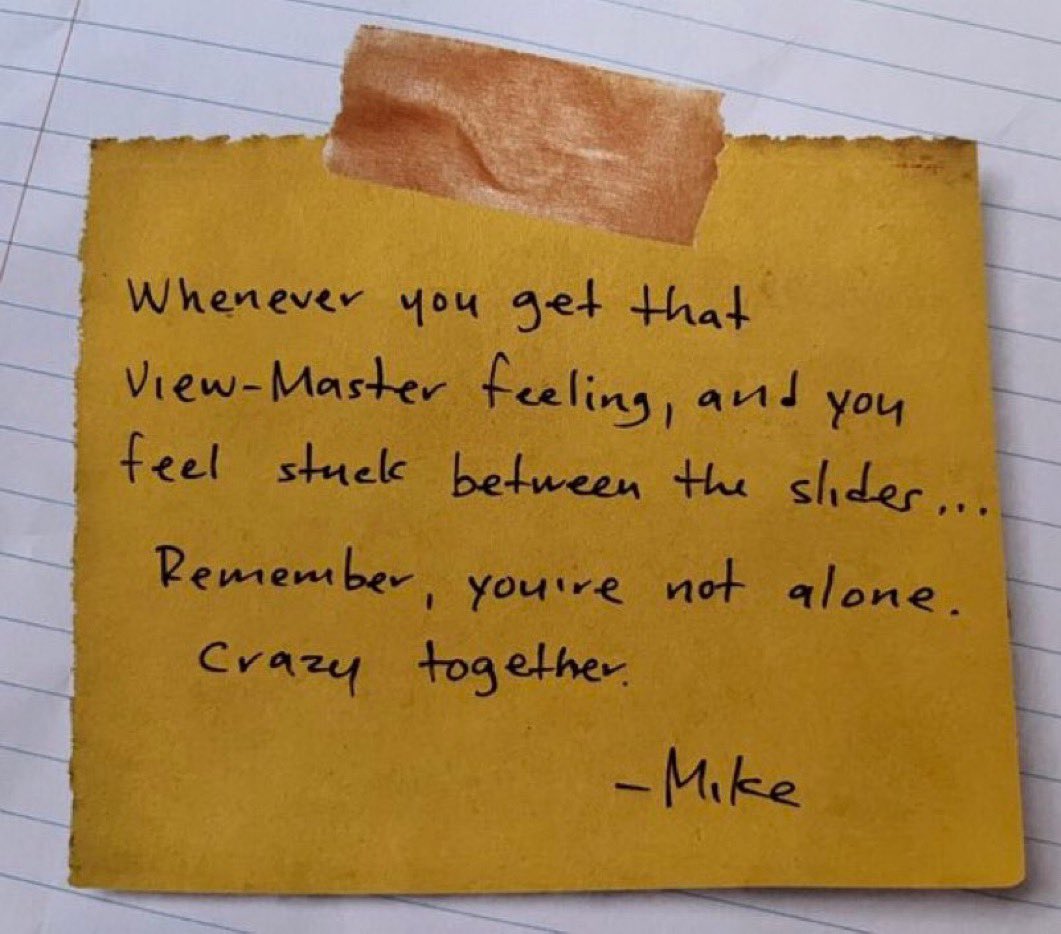 Whenever you get that
View-Master feeling, and you
feel stuck between the slides...
Remember, you're not alone.
Crazy together.
-Mike